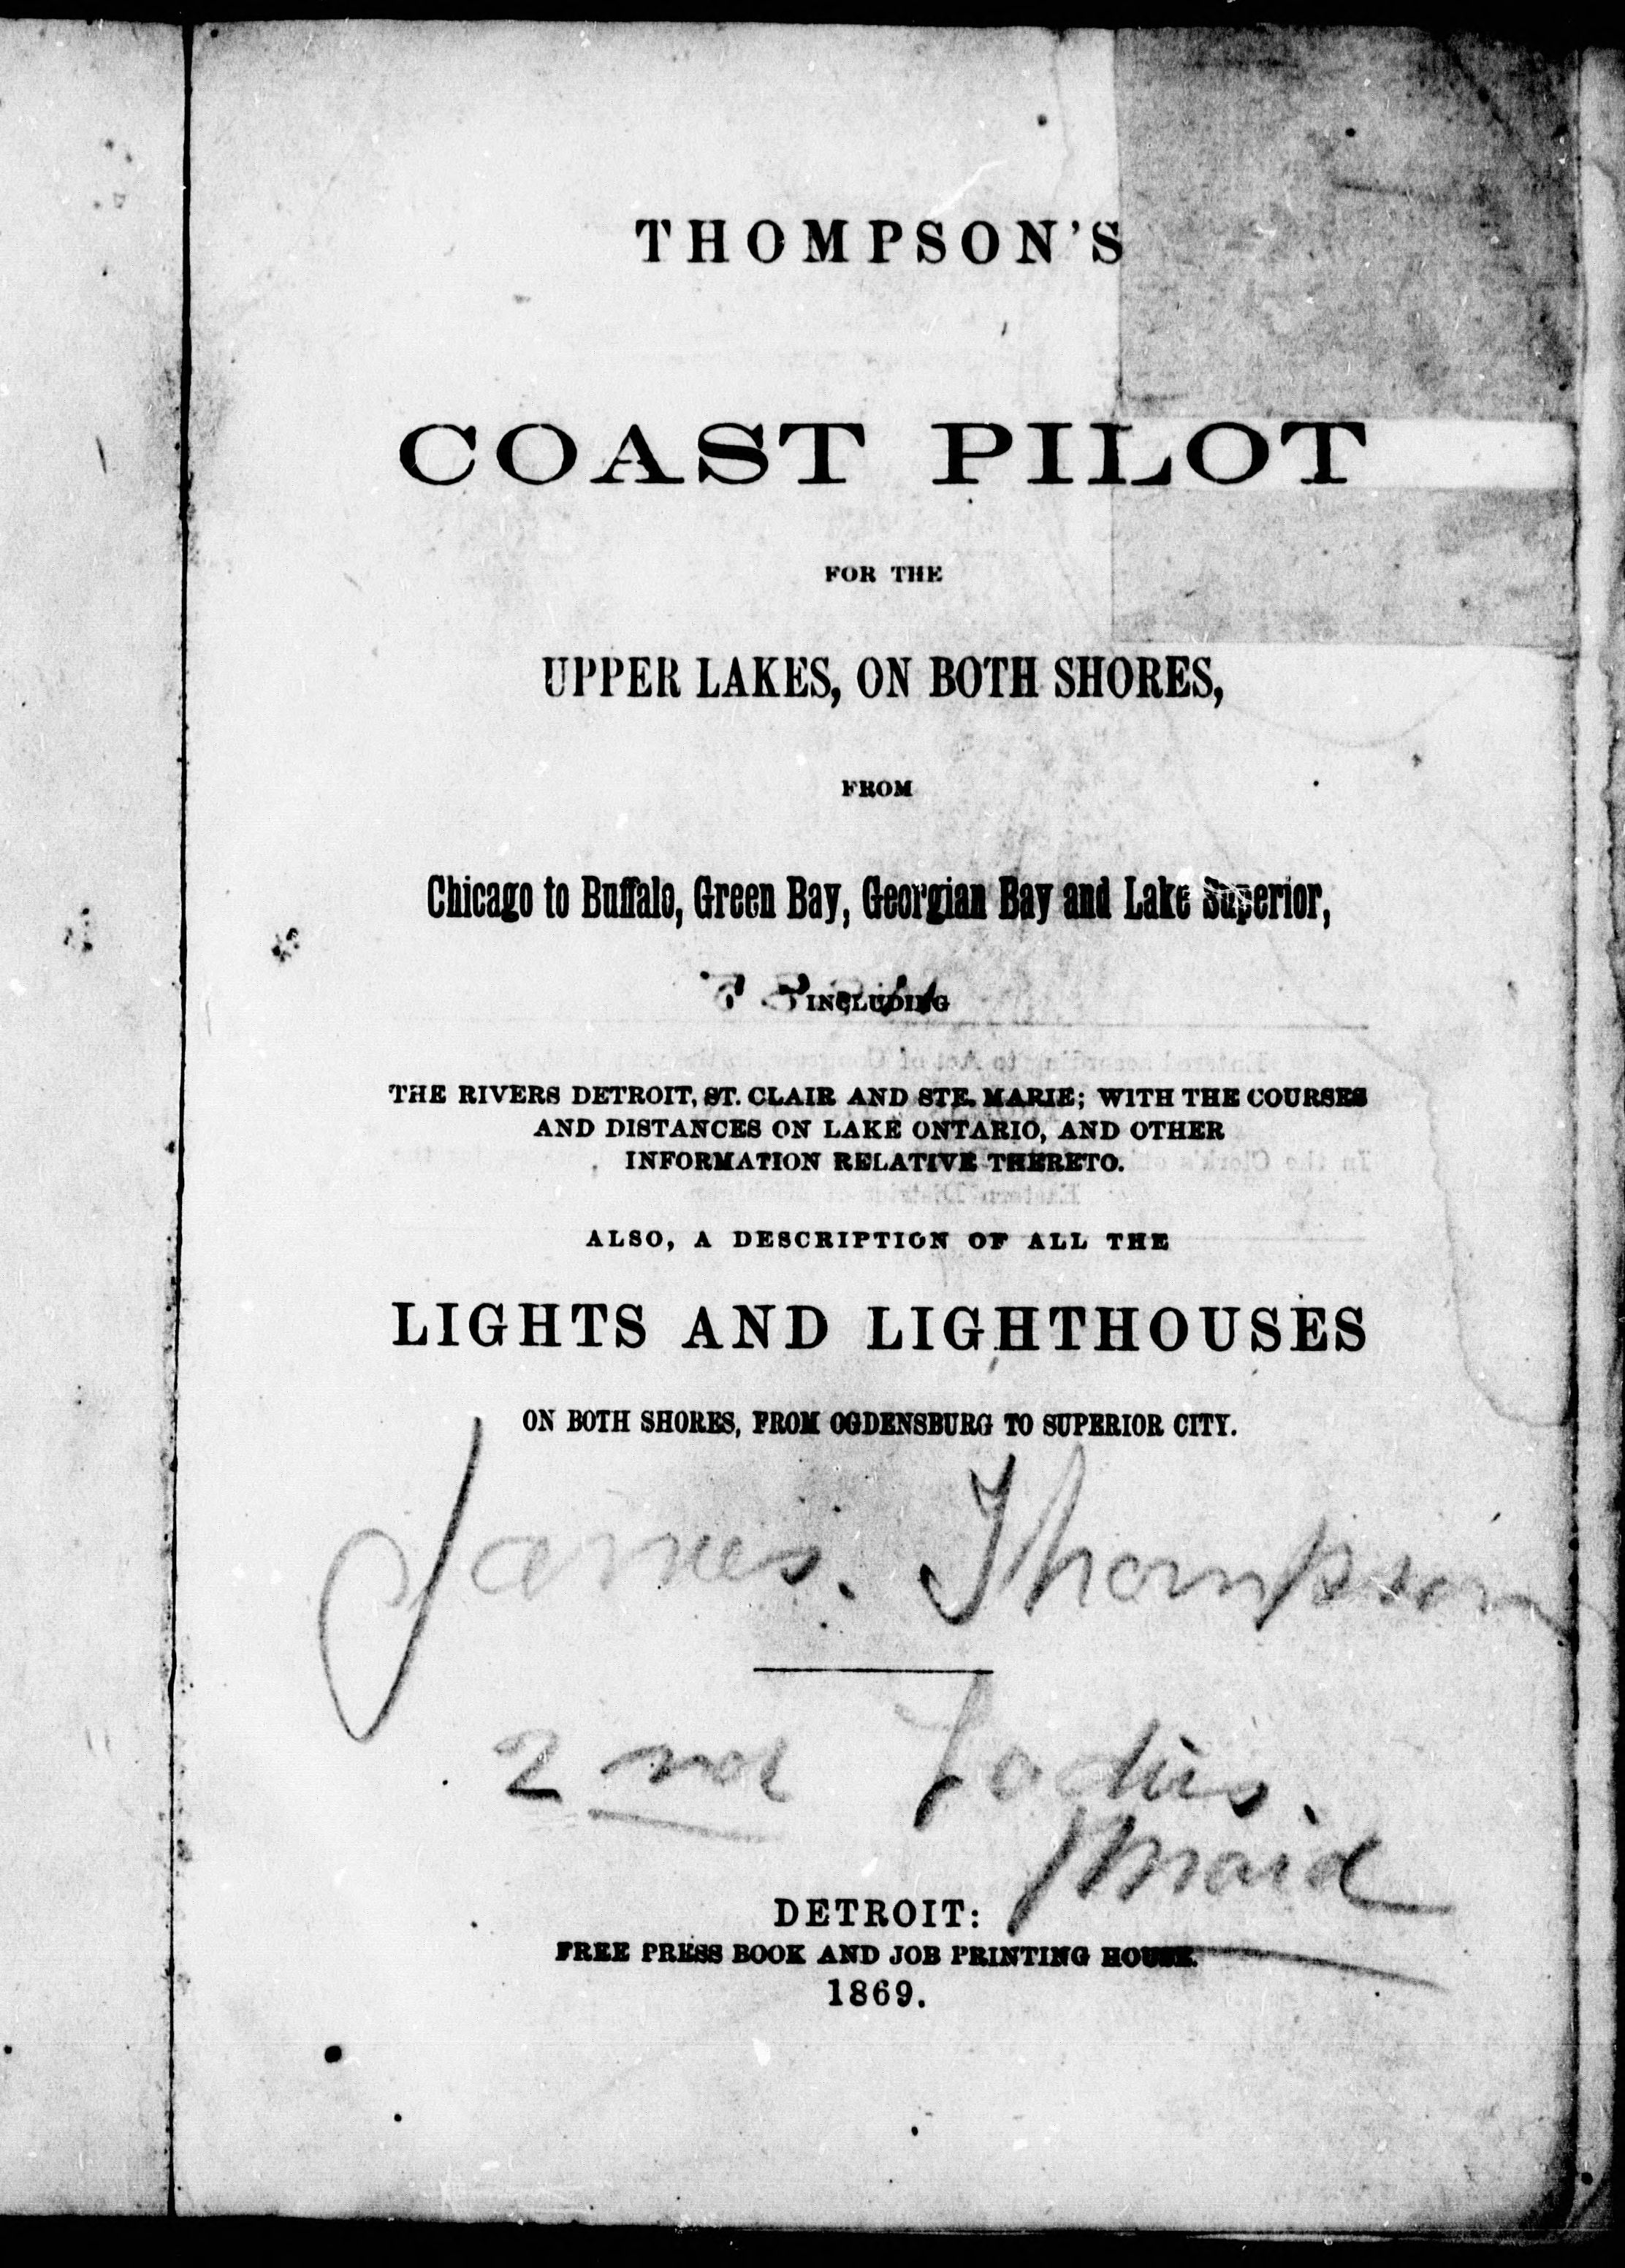 THOMPSON'S
COAST PILOT
FOR THE
UPPER LAKES, ON BOTH SHORES,
FROM
Chicago to Buffalo, Green Bay, Georgian Bay and Lake Superior,
INCLUDING
THE RIVERS DETROIT, ST. CLAIR AND STE. MARIE; WITH THE COURSES
AND DISTANCES ON LAKE ONTARIO, AND OTHER
INFORMATION RELATIVE THERETO.
ALSO, A DESCRIPTION OF ALL THE
LIGHTS AND LIGHTHOUSES
ON BOTH SHORES, FROM OGDENSBURG TO SUPERIOR CITY.
James. Thompson
2nd Ladies.
Maid
DETROIT:
FREE PRESS BOOK AND JOB PRINTING HOUSE.
1869.